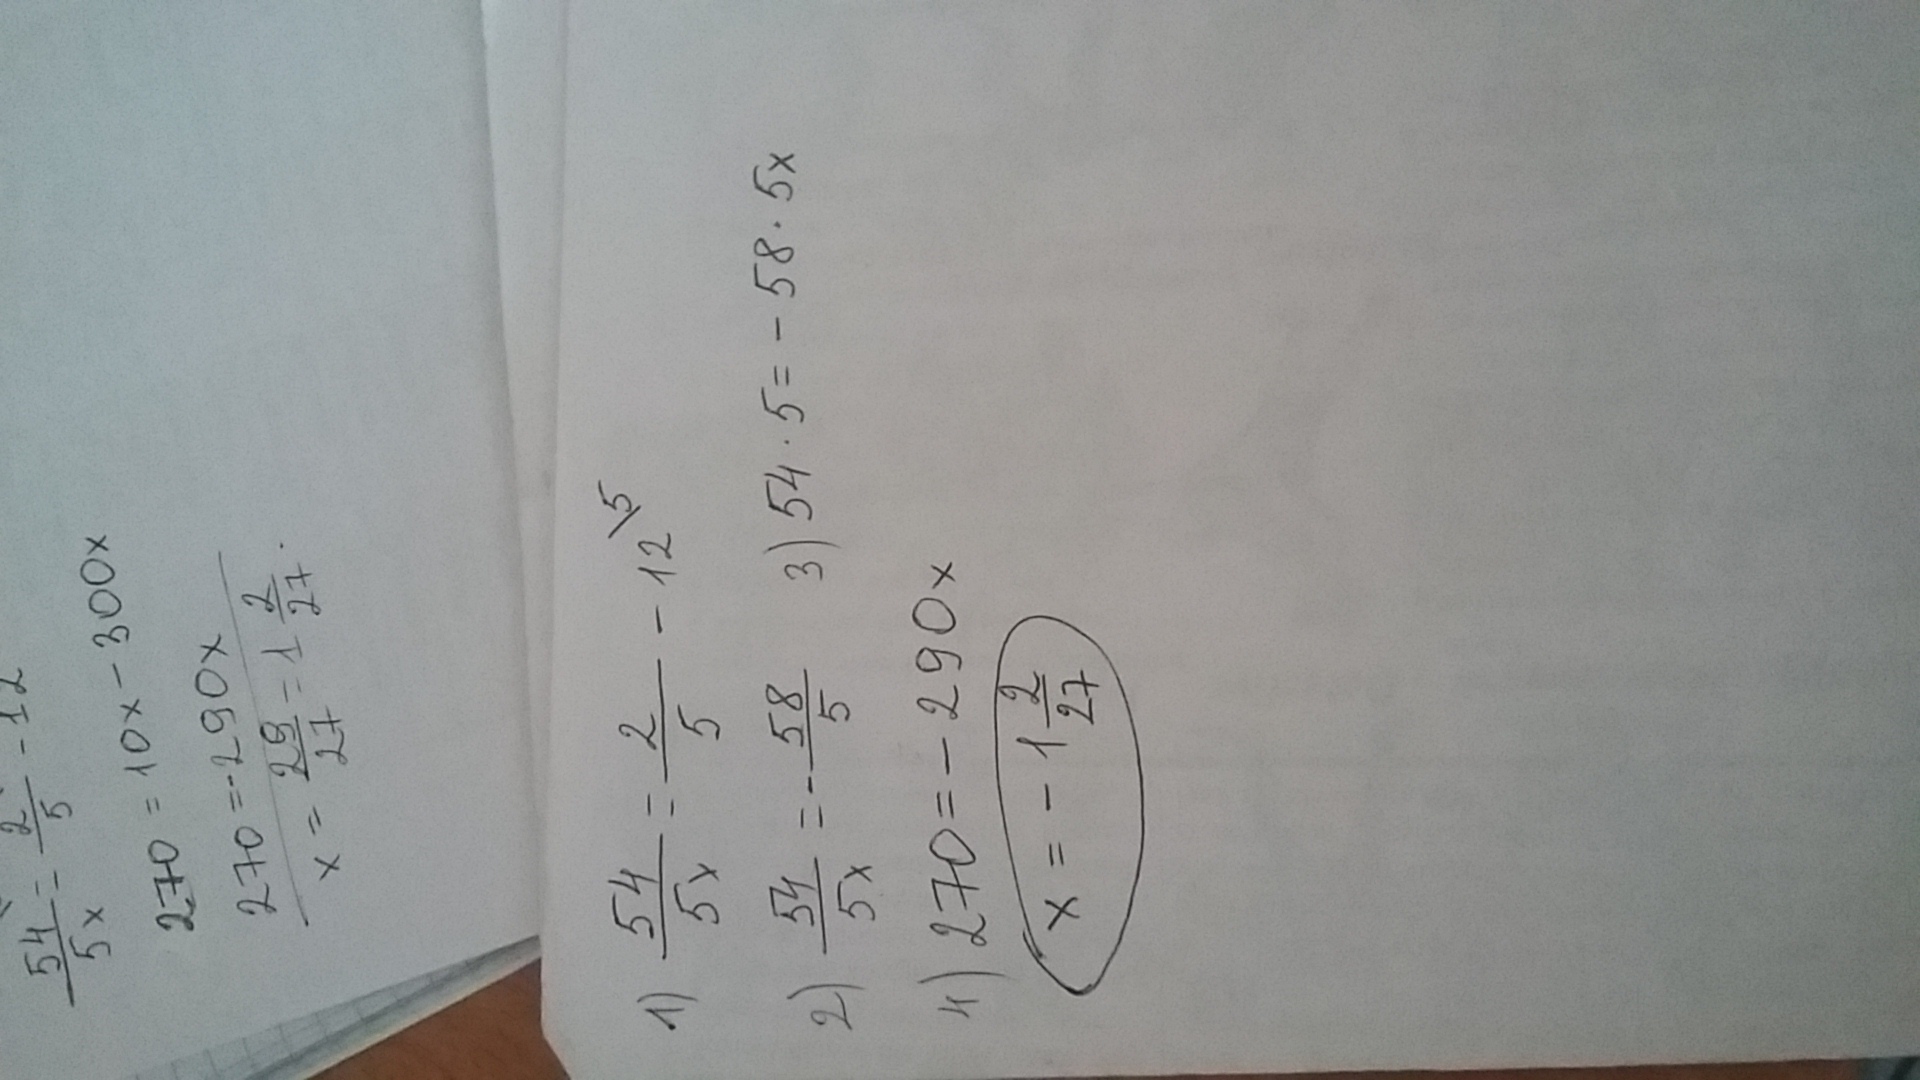 54/5x = 2/5 - 12
270 = 10x - 300x
270 = -290x
x = 29/27 = 1 2/27.
1) 54/5x = 2/5 - 12\5
2) 54/5x = -58/5 3) 54 · 5 = -58 · 5x
4) 270 = -290x
x = -1 2/27